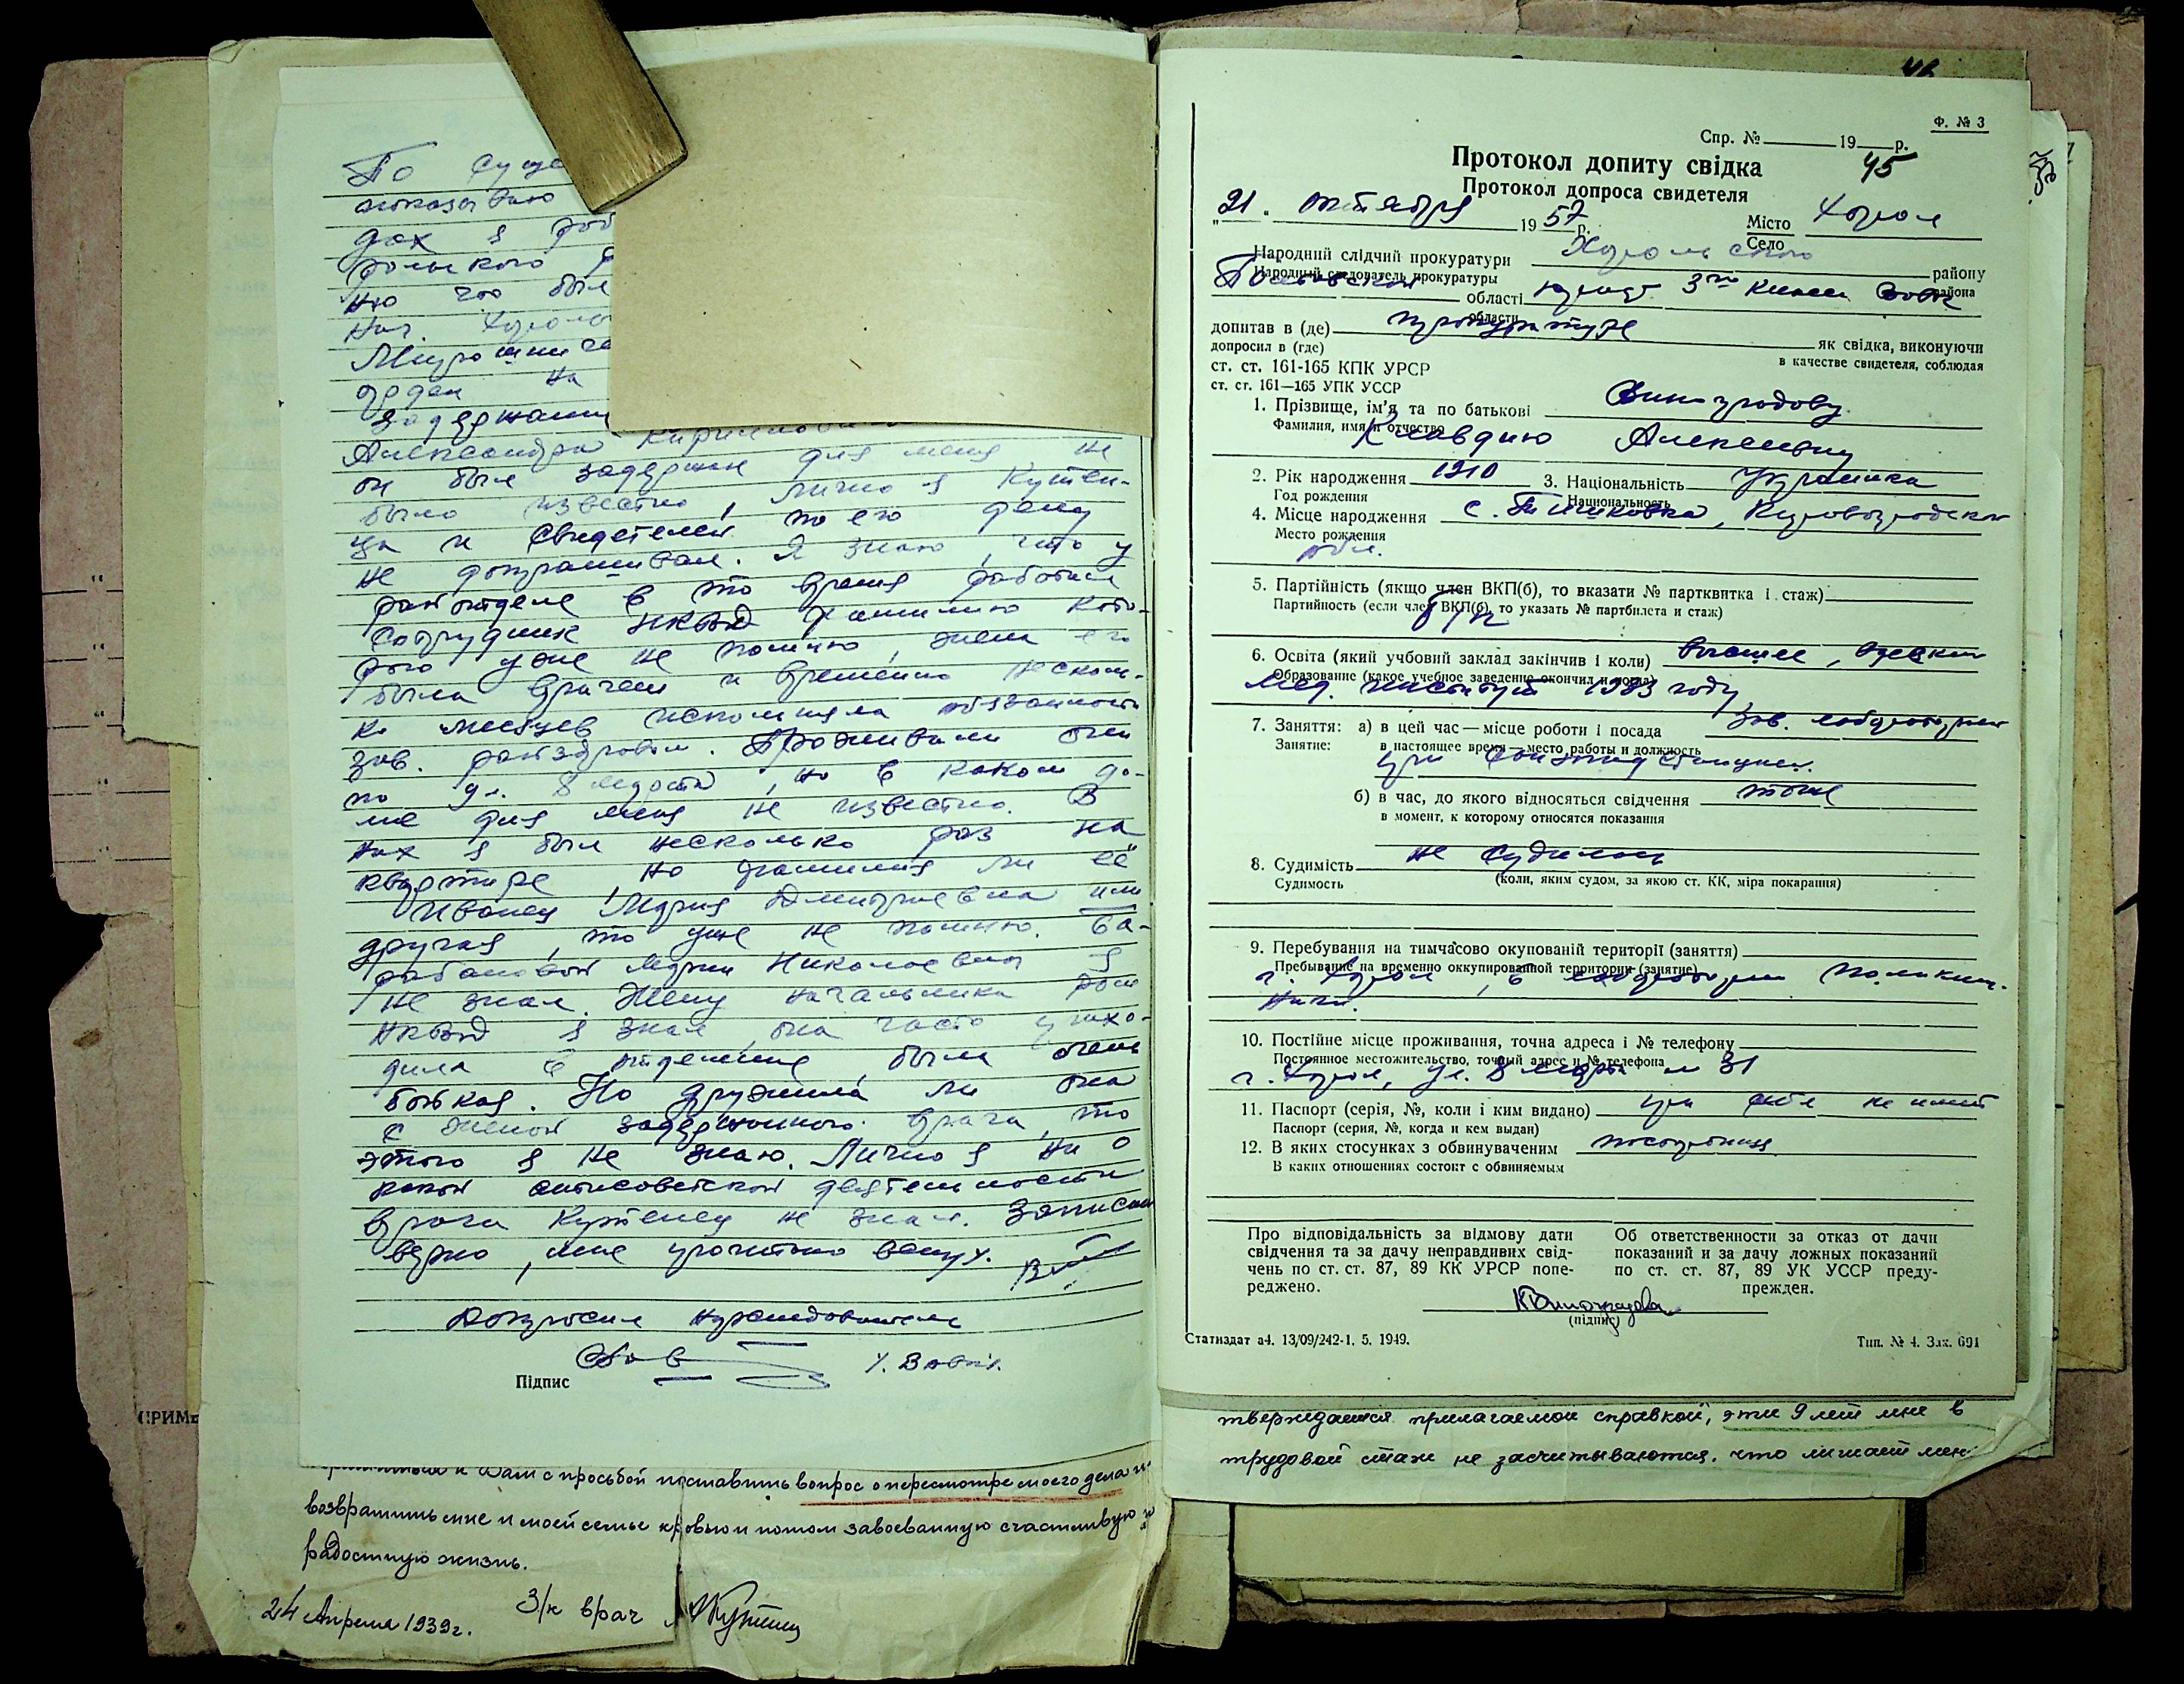 По суще
показываю
дах я раб
рольского р
но что был
нач. Хороль
Мирошниче
орден на
задержании
Александра Кирилло
он был задержан для меня не
было известно, лично я Кутен-
ца и свидетелей по его делу
не допрашивал. Я знаю, что у
райотделе в то время работал
сотрудник НКВД фамилию кото-
рого уже не помню, жена его
была врачем и временно несколь-
ко месяцев исполняла обязанности
зав. райздравом. Проживали они
по ул. 8 марта, но в каком до-
ме для меня не известно. В
них я был несколько раз на
квартире, но фамилия ли её
Иванец Мария Дмитриевна или
другая, то уже не помню. Ба-
рабановой Марии Николаевны я
не знал. Жену начальника РОМ
НКВД я знал, она часто прихо-
дила в отделение, была очень
бойкая. Но дружила ли она
с женой задержанного врача, то
этого я не знаю. Лично я ни о
какой антисоветской деятельности
врача Кутенец не знал. Записано
верно, мне прочитано вслух.
Допросил Нарследователь
Підпис
СПРИМЕ
к Вам с просьбой поставить вопрос о пересмотре моего дела и
возвратить мне и моей семье кровью и потом завоеванную счастливую и
радостную жизнь.
24 Апреля 1939г. З/к врач
Ф. № 3
Спр. № 19 р.
45
Протокол допиту свідка
Протокол допроса свидетеля
„21“ октября 1957 р. Місто Село Хорол
Народний слідчий прокуратури Хорольского району
Народный следователь прокуратуры района
Полтавской області юрист 3го класса
области
допитав в (де) прокуратуре як свідка, виконуючи
допросил в (где) в качестве свидетеля, соблюдая
ст. ст. 161-165 КПК УРСР
ст. ст. 161—165 УПК УССР
1. Прізвище, ім'я та по батькові Виноградову
Фамилия, имя и отчество
Клавдию Алексеевну
2. Рік народження 1910 3. Національність Украинка
Год рождения Национальность
4. Місце народження с. Тишковка, Кировоградской
Место рождения
обл.
5. Партійність (якщо член ВКП(б), то вказати № партквитка і стаж)
Партийность (если член ВКП(б), то указать № партбилета и стаж)
б/п
6. Освіта (який учбовий заклад закінчив і коли) высшее, Одеский
Образование (какое учебное заведение окончил и когда)
мед. институт 1933 году
7. Заняття: а) в цей час — місце роботи і посада зав. лабораторией
Занятие: в настоящее время — место работы и должность
при санэпидстанции.
б) в час, до якого відносяться свідчення тоже
в момент, к которому относятся показания
8. Судимість не судилась
Судимость (коли, яким судом, за якою ст. КК, міра покарання)
9. Перебування на тимчасово окупованій території (заняття)
Пребывание на временно оккупированной территории (занятие)
г. Хорол, в лаборатории поликли-
ники.
10. Постійне місце проживання, точна адреса і № телефону
Постоянное местожительство, точный адрес и № телефона
г. Хорол, ул. 8 марта № 31
11. Паспорт (серія, №, коли і ким видано) при себе не имеет
Паспорт (серия, №, когда и кем выдан)
12. В яких стосунках з обвинуваченим посторонняя
В каких отношениях состоит с обвиняемым
Про відповідальність за відмову дати
свідчення та за дачу неправдивих свід-
чень по ст. ст. 87, 89 КК УРСР попе-
реджено.
Об ответственности за отказ от дачи
показаний и за дачу ложных показаний
по ст. ст. 87, 89 УК УССР преду-
прежден.
КВиноградова
(підпис)
Статиздат а4. 13/09/242-1. 5. 1949. Тип. № 4. Зак. 691
тверждается прилагаемой справкой, эти 9 лет мне в
трудовой стаж не засчитываются, что лишает мен